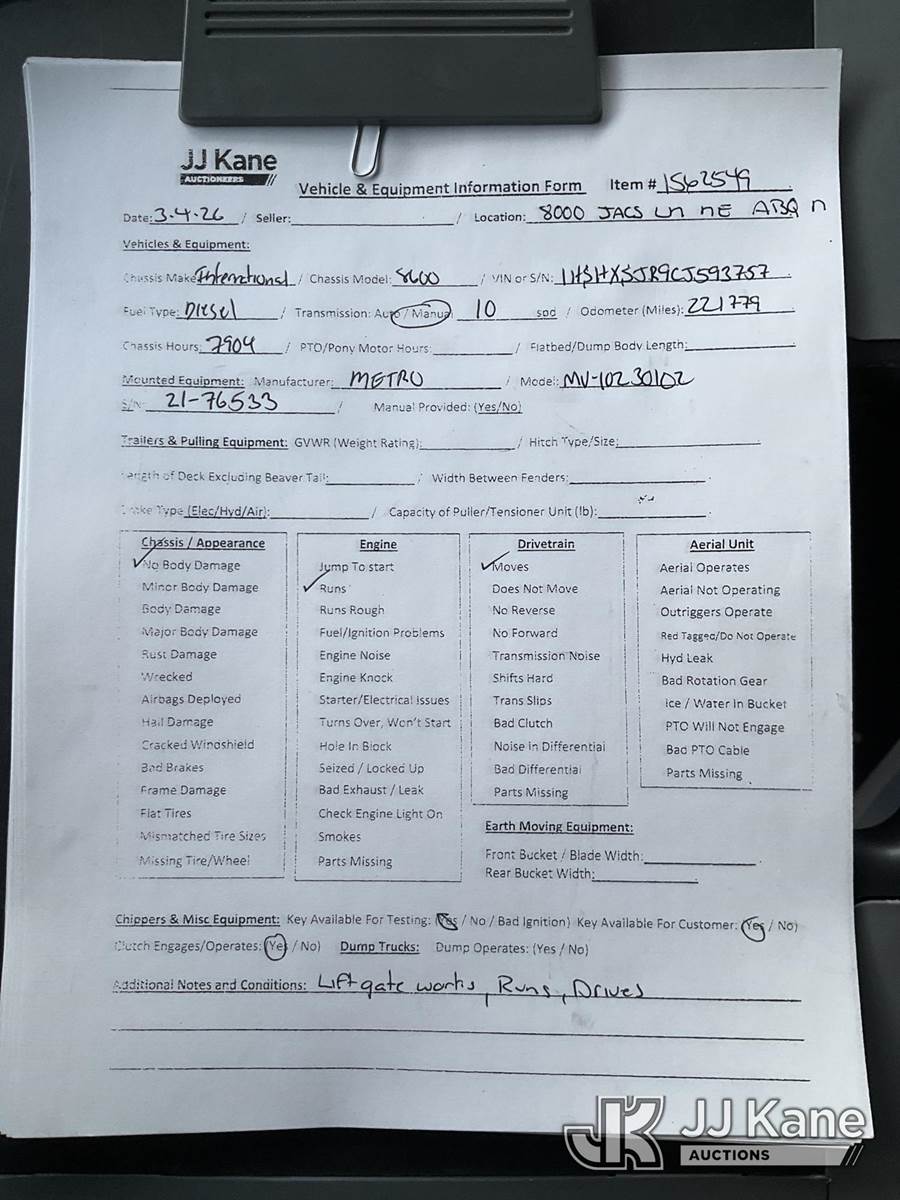 JJ Kane
AUCTIONEERS
Vehicle & Equipment Information Form Item # 1562549
Date: 3-4-26 / Seller: / Location: 8000 JACS LN NE ABQ N
Vehicles & Equipment:
Chassis Make: International / Chassis Model: 8600 / VIN or S/N: 1HSHXSJR9CJ593757
Fuel Type: Diesel / Transmission: Auto / Manual 10 spd / Odometer (Miles): 221779
Chassis Hours: 7904 / PTO/Pony Motor Hours: / Flatbed/Dump Body Length:
Mounted Equipment: Manufacturer: METRO / Model: MV-10230102
S/N: 21-76533 / Manual Provided: (Yes/No)
Trailers & Pulling Equipment: GVWR (Weight Rating): / Hitch Type/Size:
Length of Deck Excluding Beaver Tail: / Width Between Fenders:
Brake Type (Elec/Hyd/Air): / Capacity of Puller/Tensioner Unit (lb):
Chassis / Appearance
No Body Damage
Minor Body Damage
Body Damage
Major Body Damage
Rust Damage
Wrecked
Airbags Deployed
Hail Damage
Cracked Windshield
Bad Brakes
Frame Damage
Flat Tires
Mismatched Tire Sizes
Missing Tire/Wheel
Engine
Jump To start
Runs
Runs Rough
Fuel/Ignition Problems
Engine Noise
Engine Knock
Starter/Electrical Issues
Turns Over, Won't Start
Hole In Block
Seized / Locked Up
Bad Exhaust / Leak
Check Engine Light On
Smokes
Parts Missing
Drivetrain
Moves
Does Not Move
No Reverse
No Forward
Transmission Noise
Shifts Hard
Trans Slips
Bad Clutch
Noise in Differential
Bad Differential
Parts Missing
Aerial Unit
Aerial Operates
Aerial Not Operating
Outriggers Operate
Red Tagged/Do Not Operate
Hyd Leak
Bad Rotation Gear
Ice / Water In Bucket
PTO Will Not Engage
Bad PTO Cable
Parts Missing
Earth Moving Equipment:
Front Bucket / Blade Width:
Rear Bucket Width:
Chippers & Misc Equipment: Key Available For Testing: (Yes / No / Bad Ignition) Key Available For Customer: (Yes / No)
Clutch Engages/Operates: (Yes / No) Dump Trucks: Dump Operates: (Yes / No)
Additional Notes and Conditions: Liftgate works, Runs, Drives
JK JJ Kane
AUCTIONS